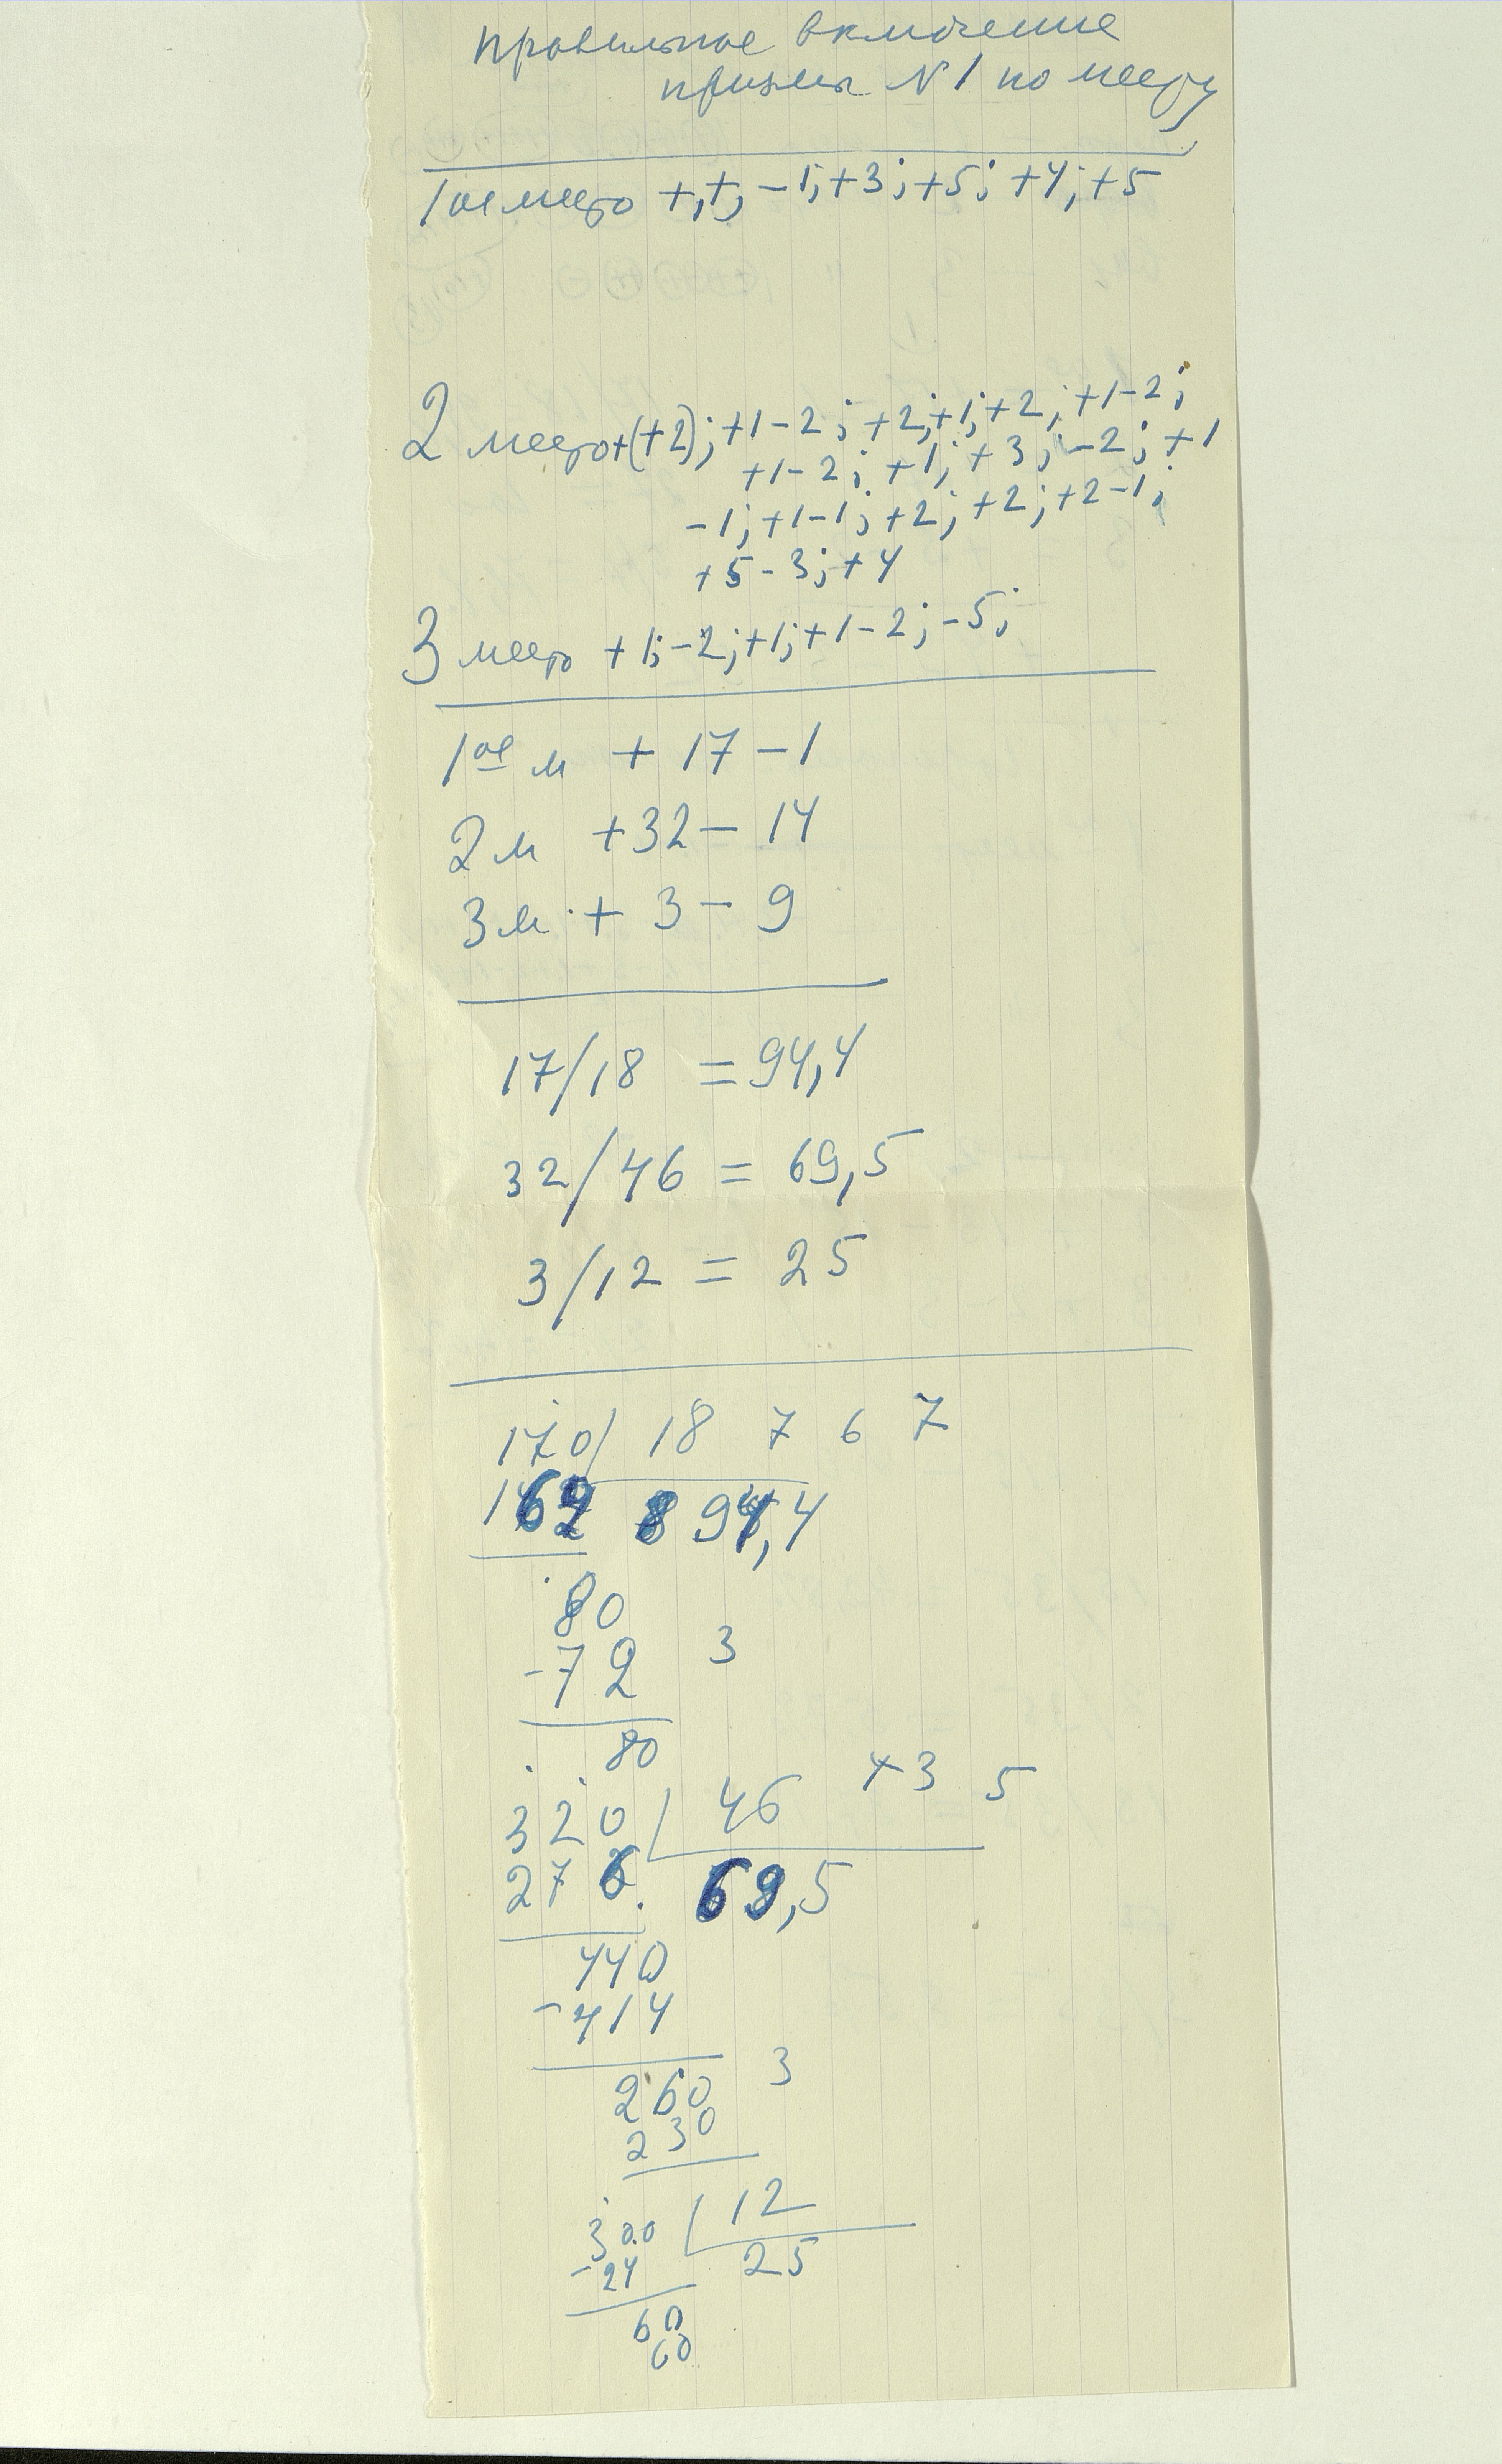 правильное включение
призмы N 1 по месту
1ое место +,+, -1; +3; +5; +4; +5
2 место +(+2); +1-2; +2; +1; +2; +1-2;
+1-2; +1; +3; -2; +1
-1; +1-1; +2; +2; +2-1;
+5-3; +4
3 место +1; -2; +1; +1-2; -5;
1ое м + 17 - 1
2 м +32 - 14
3 м + 3 - 9
17/18 = 94,4
32/46 = 69,5
3/12 = 25
170/ 18 7 6 7
162 94,4
80
-72 3
80
+3 5
320 46
276 69,5
440
-414
260 3
230
300 12
-24 25
60
60